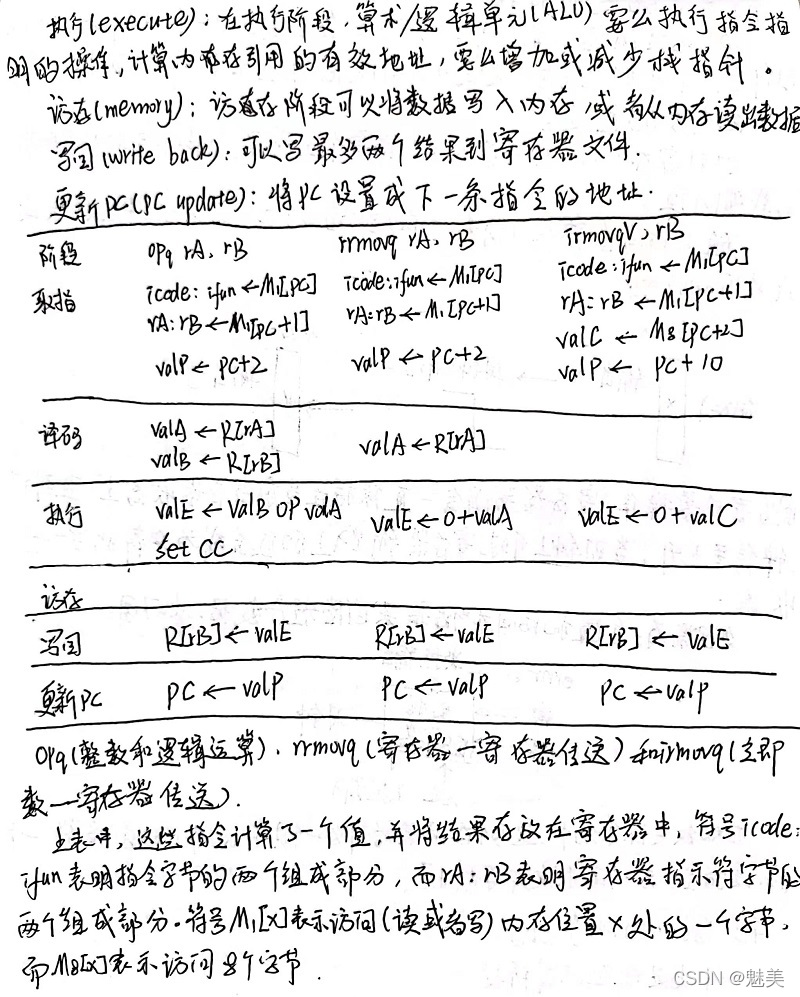 执行(execute)：在执行阶段，算术/逻辑单元(ALU)要么执行指令指
明的操作，计算内存引用的有效地址，要么增加或减少栈指针。
访存(memory)：访存阶段可以将数据写入内存，或者从内存读出数据
写回(write back)：可以写最多两个结果到寄存器文件.
更新PC(PC update)：将PC设置成下一条指令的地址.
阶段 OPq rA, rB rrmovq rA, rB irmovq V, rB
取指 icode:ifun ← M1[PC] icode:ifun ← M1[PC] icode:ifun ← M1[PC]
rA:rB ← M1[PC+1] rA:rB ← M1[PC+1] rA:rB ← M1[PC+1]
valC ← M8[PC+2]
valP ← PC+2 valP ← PC+2 valP ← PC+10
译码 valA ← R[rA] valA ← R[rA]
valB ← R[rB]
执行 valE ← valB OP valA valE ← 0+valA valE ← 0+valC
Set CC
访存
写回 R[rB] ← valE R[rB] ← valE R[rB] ← valE
更新PC PC ← valP PC ← valP PC ← valP
OPq(整数和逻辑运算)、rrmovq(寄存器一寄存器传送)和irmovq(立即
数一寄存器传送).
上表中，这些指令计算了一个值，并将结果存放在寄存器中，符号icode:
ifun表明指令字节的两个组成部分，而rA:rB表明寄存器指示符字节的
两个组成部分.符号M1[x]表示访问(读或者写)内存位置x处的一个字节，
而M8[x]表示访问8个字节.
CSDN @魅美